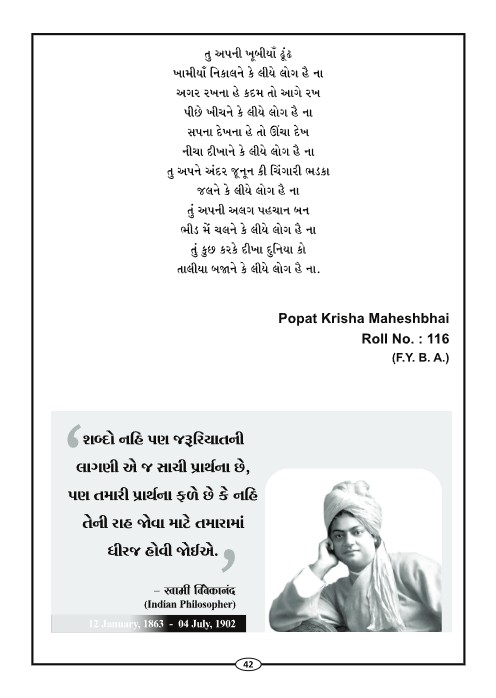 તુ અપની ખૂબીયાઁ ઢૂંઢ
ખામીયાઁ નિકાલને કે લીયે લોગ હૈ ના
અગર રખના હે કદમ તો આગે રખ
પીછે ખીચને કે લીયે લોગ હૈ ના
સપના દેખના હે તો ઊંચા દેખ
નીચા દીખાને કે લીયે લોગ હૈ ના
તુ અપને અંદર જૂનૂન કી ચિંગારી ભડકા
જલને કે લીયે લોગ હૈ ના
તું અપની અલગ પહચાન બન
ભીડ મેં ચલને કે લીયે લોગ હૈ ના
તું કુછ કરકે દીખા દુનિયા કો
તાલીયા બજાને કે લીયે લોગ હૈ ના.
Popat Krisha Maheshbhai
Roll No. : 116
(F.Y. B. A.)
‘શબ્દો નહિ પણ જરૂરિયાતની
લાગણી એ જ સાચી પ્રાર્થના છે,
પણ તમારી પ્રાર્થના ફળે છે કે નહિ
તેની રાહ જોવા માટે તમારામાં
ધીરજ હોવી જોઈએ.’
– સ્વામી વિવેકાનંદ
(Indian Philosopher)
12 January, 1863 - 04 July, 1902
42